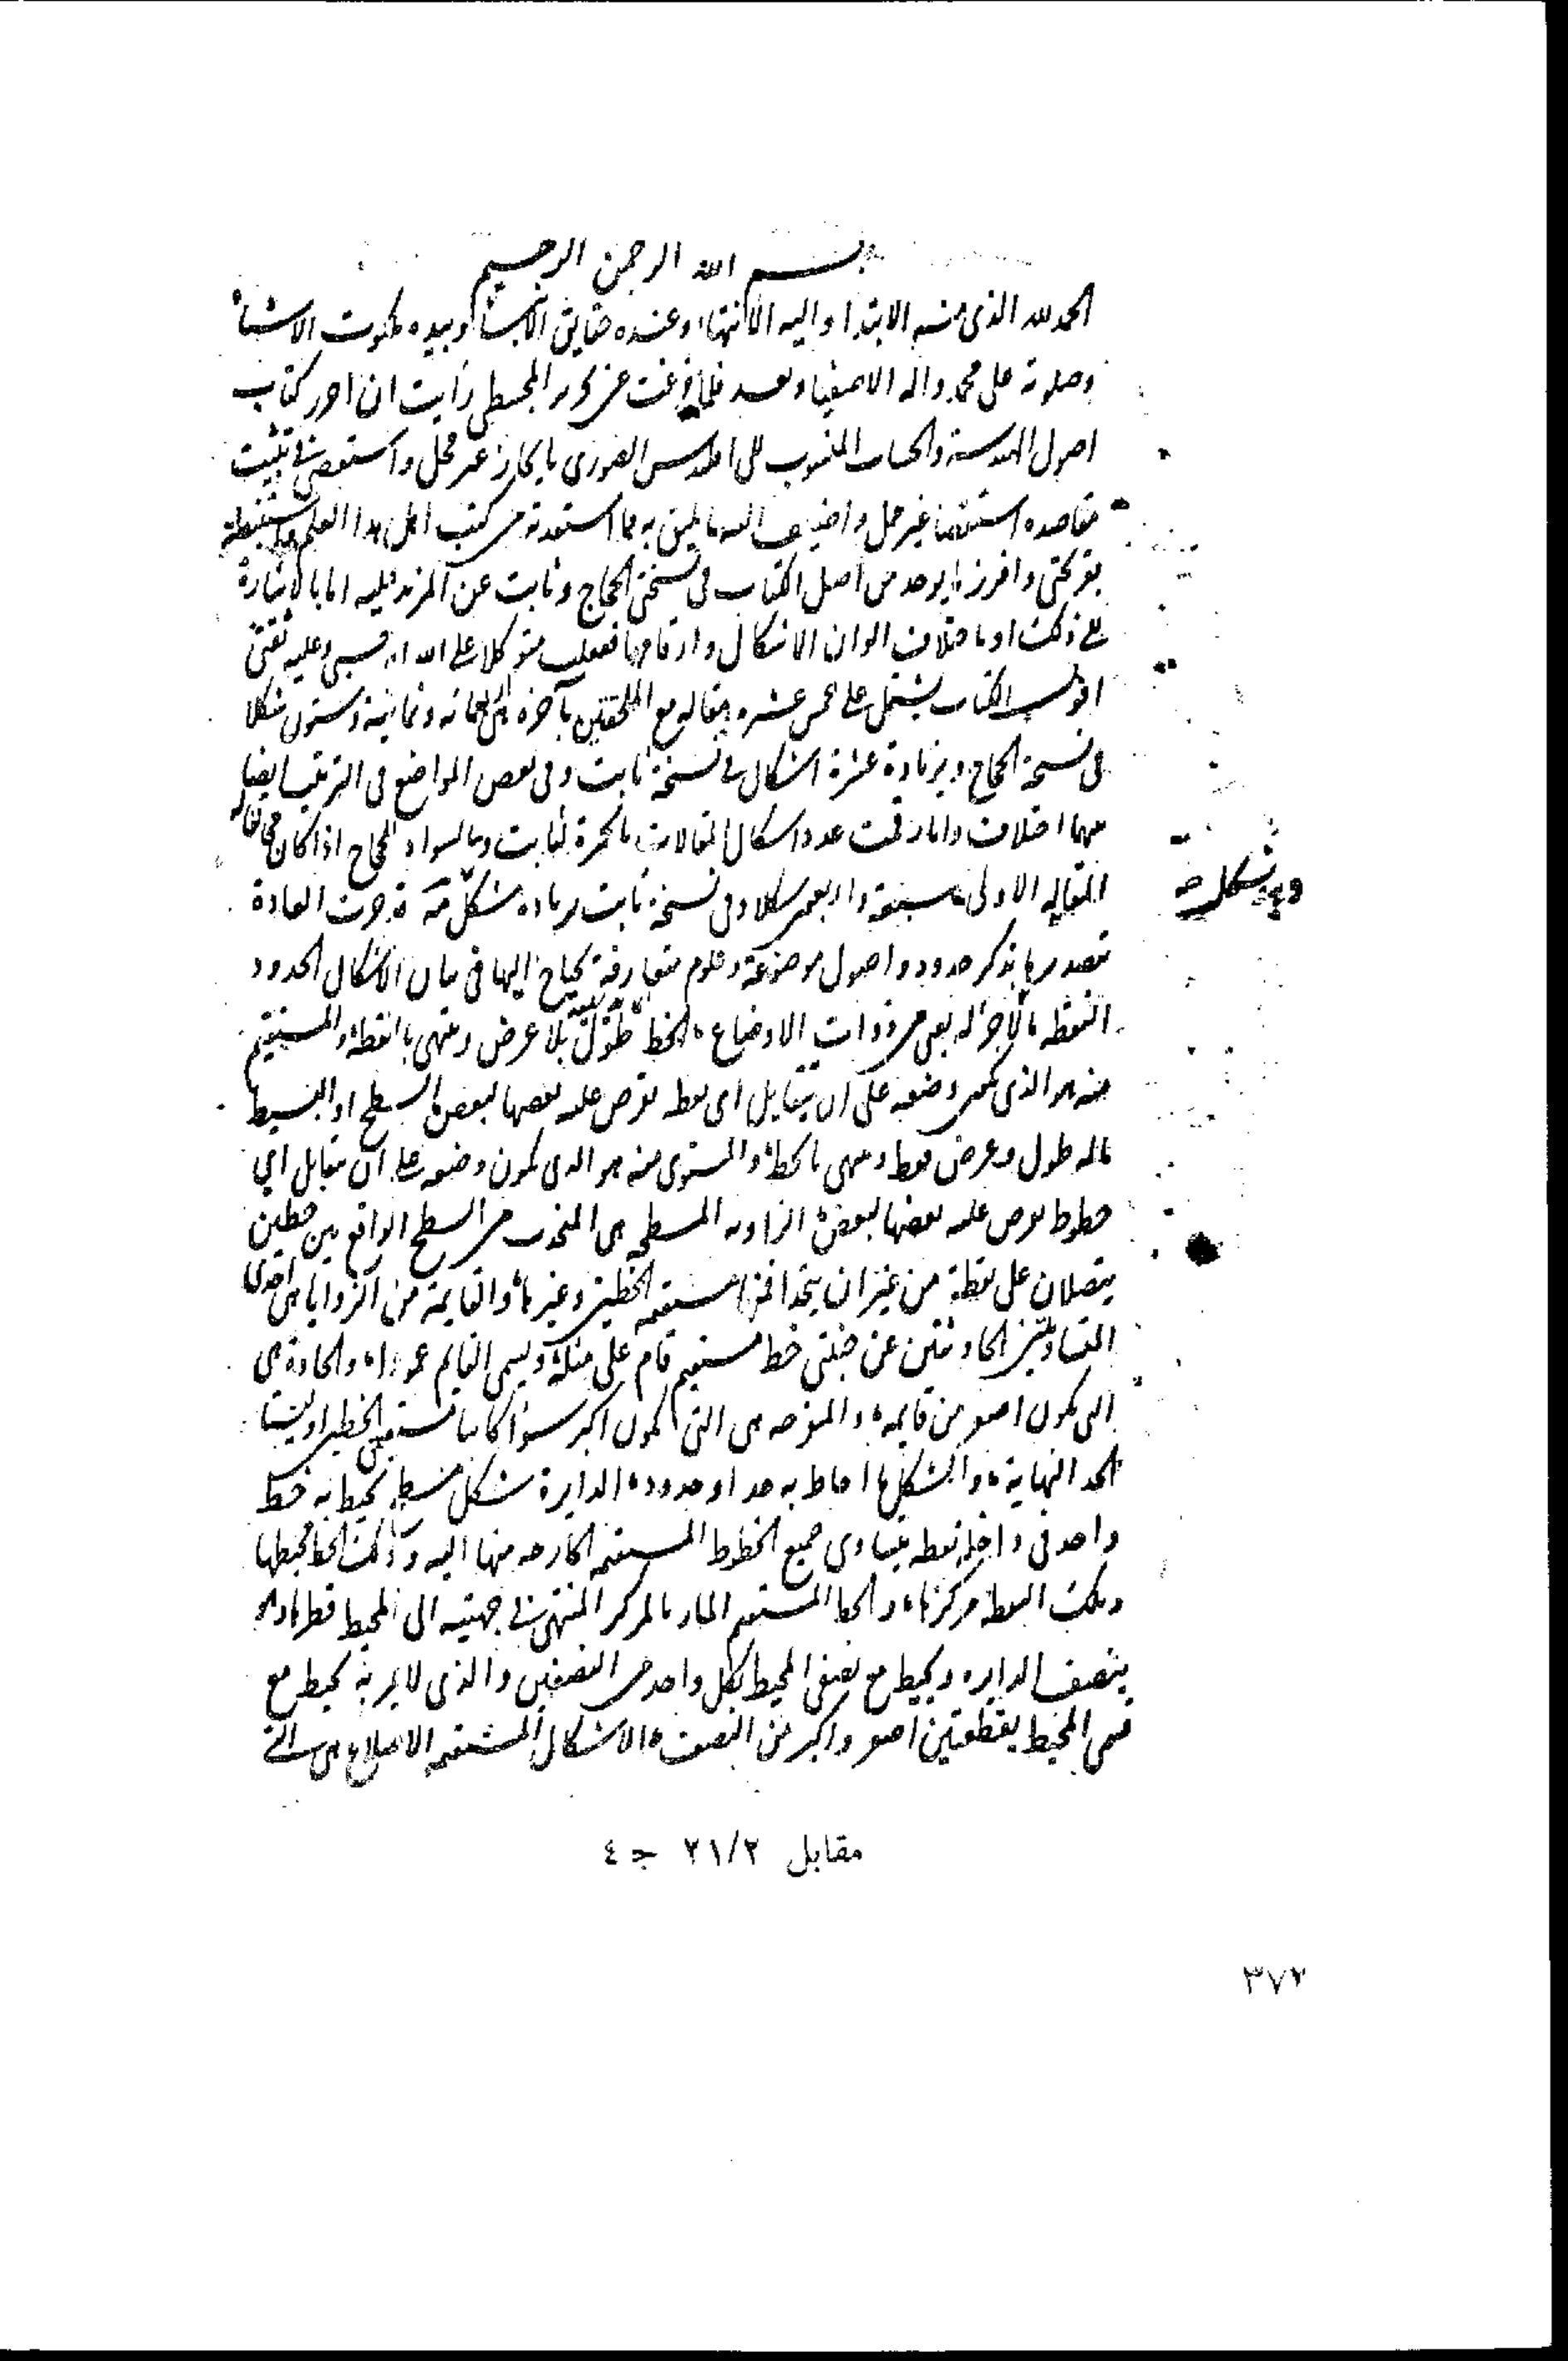 بسم الله الرحمن الرحيم
الحمد لله الذى منه الابتدا واليه الانتهاء وعنده حقايق الانبا وبيده ملكوت الاشيا
وصلوته على محمد واله الاصفيا وبعد فلما فرغت عن تحرير المجسطى رأيت ان احرر كتاب
اصول الهندسة والحساب المنسوب الى اقليدس الصورى بايجاز غير مخل واستقصى فى تثبيت
مقاصده استقصا غير ممل واضيف اليه ما يليق به مما استفدته من كتب اهل هذا العلم واستنبطته
بقريحتى وافرز ما يوجد من اصل الكتاب فى نسختى الحجاج وثابت عن المزيد عليه اما بالاشارة
الى ذلك او باختلاف الوان الاشكال وارقامها ففعلت متوكلا على الله انه حسبى وعليه ثقتى
اقول الكتاب يشتمل على خمس عشره مقاله مع الملحقتين بآخره وهى اربعمائه وثمانية وستون شكلا
فى نسخة الحجاج وبزيادة عشرة اشكال فى نسخة ثابت وفى بعض المواضع فى الترتيب ايضا
بينهما اختلاف وانا رقمت عدد اشكال المقالات بالحمرة لثابت وبالسواد للحجاج اذا كان مخالفا له
المقاله الاولى سبعة واربعون شكلا وفى نسخة ثابت بزياده شكل مه قد جرت العادة
بتصديرها بذكر حدود واصول موضوعة وعلوم متعارفة يحتاج اليها فى بيان الاشكال الحدود
النقطه ما لا جزء له يعنى من ذوات الاوضاع الخط طول بلا عرض وينتهى بالنقطة والمستقيم
منه هو الذى يكون وضعه على ان يتقابل اى نقطه تفرض عليه بعضها لبعض السطح او البسيط
ما له طول وعرض فقط وينتهى بالخط والمستوى منه هو الذى يكون وضعه على ان يتقابل اى
خطوط تفرض عليه بعضها لبعض الزاويه المسطحه هى المنحدب من السطح الواقع بين خطين
يتصلان على نقطة من غير ان يتحدا فمنها مستقيمه الخطين وغيرها والقايمة من الزوايا هى احدى
المتساويتين الحادثتين عن جنبتى خط مستقيم قام على مثله ويسمى القايم عمودا والحادة هى
التى يكون اصغر من قايمه والمنفرجه هى التى يكون اكبر سواء كانتا مستقيمتى الخطين او ليستا
الحد النهاية والشكل ما احاط به حد او حدود الدايرة شكل مسطح يحيط به خط
واحد فى داخله نقطه يتساوى جميع الخطوط المستقيمه الخارجه منها اليه وذلك الخط محيطها
وتلك النقطه مركزها والخط المستقيم المار بالمركز المنتهى فى جهتيه الى المحيط قطرها وهو
ينصف الدايره ويحيط مع نصفى المحيط بكل واحد من النصفين والذى لا يمر به يحيط مع
قسمى المحيط بقطعتين اصغر واكبر من النصف الاشكال المستقيمه الاضلاع هى التى
مقابل ٢١/٢ ج ٤
٣٧٢